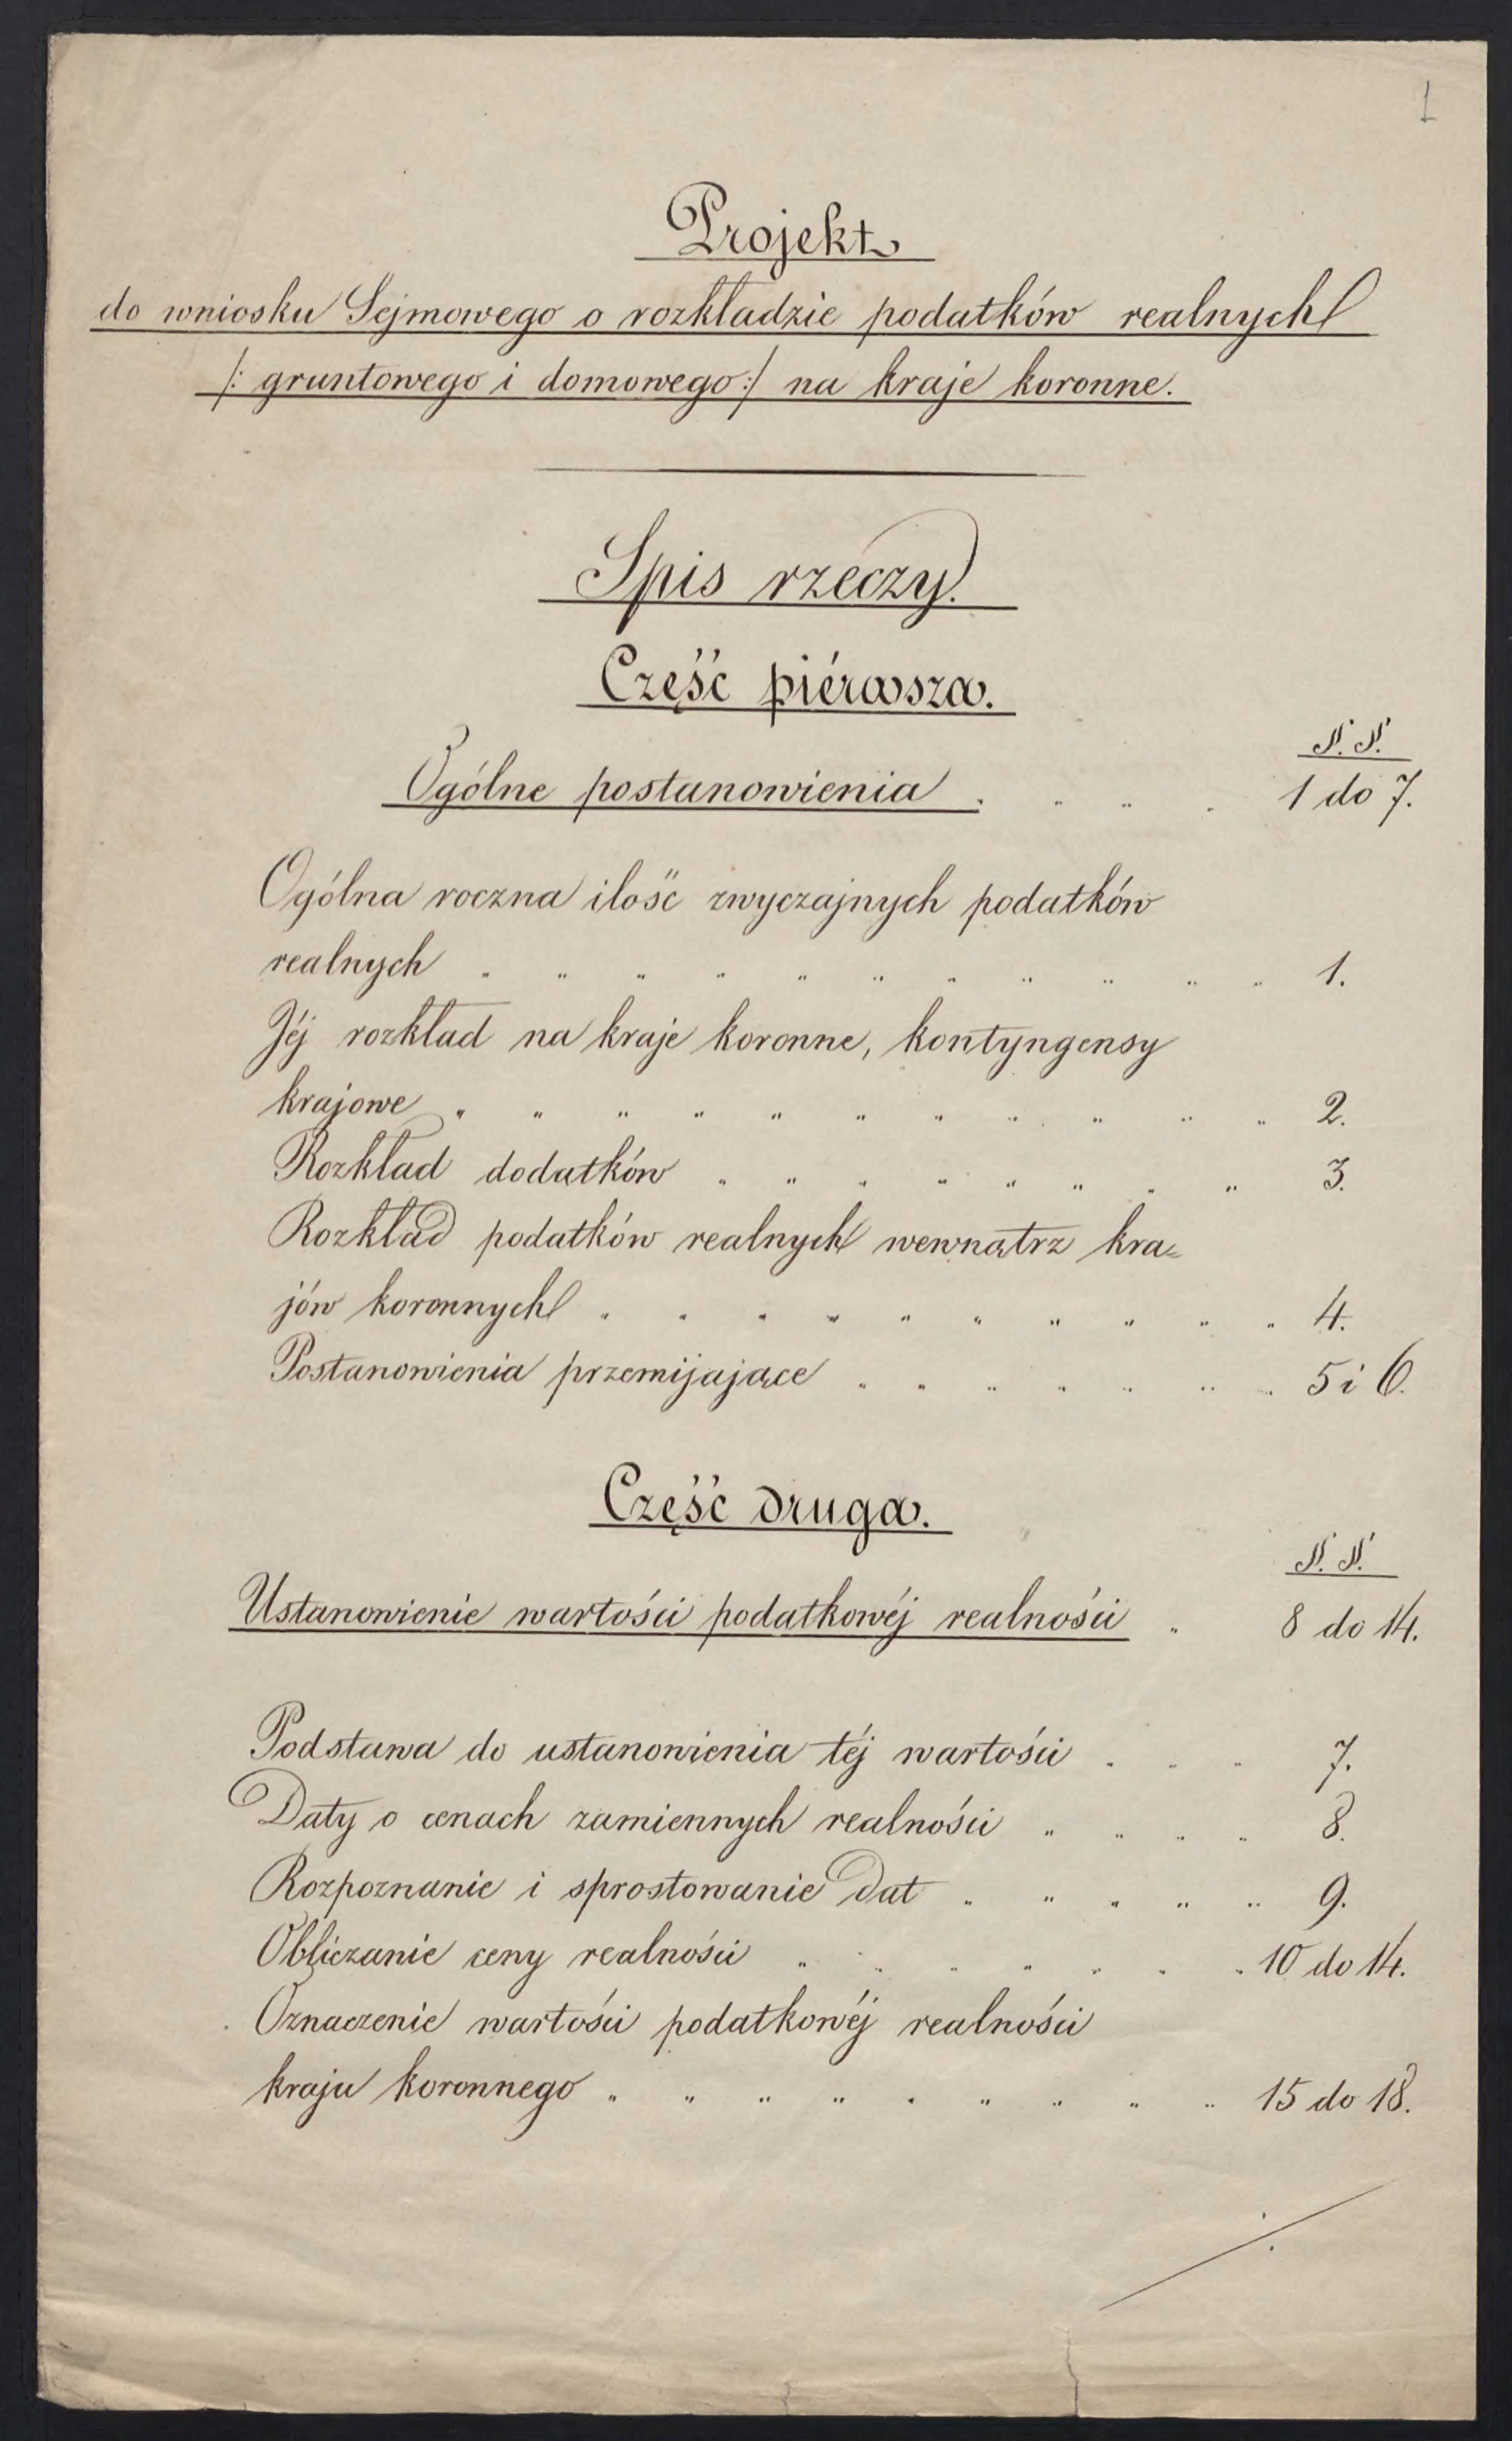 1
Projekt
do wniosku Sejmowego o rozkładzie podatków realnych
/: gruntowego i domowego :/ na kraje koronne.
Spis rzeczy.
Część piérwsza.
N. N.
Ogólne postanowienia . . . . 1 do 7.
Ogólna roczna ilość zwyczajnych podatków
realnych . . . . . . . . . . . 1.
Jéj rozkład na kraje koronne, kontyngensy
krajowe . . . . . . . . . . . 2.
Rozkład dodatków . . . . . . . . 3.
Rozkład podatków realnych wewnątrz kra=
jów koronnych . . . . . . . . . . 4.
Postanowienia przemijające . . . . . . . 5 i 6.
Część druga.
N. N.
Ustanowienie wartości podatkowéj realności . 8 do 14.
Podstawa do ustanowienia téj wartości . . . 7.
Daty o cenach zamiennych realności . . . . 8.
Rozpoznanie i sprostowanie dat . . . . . 9.
Obliczanie ceny realności . . . . . . . 10 do 14.
Oznaczenie wartości podatkowéj realności
kraju koronnego . . . . . . . . . 15 do 18.
./.